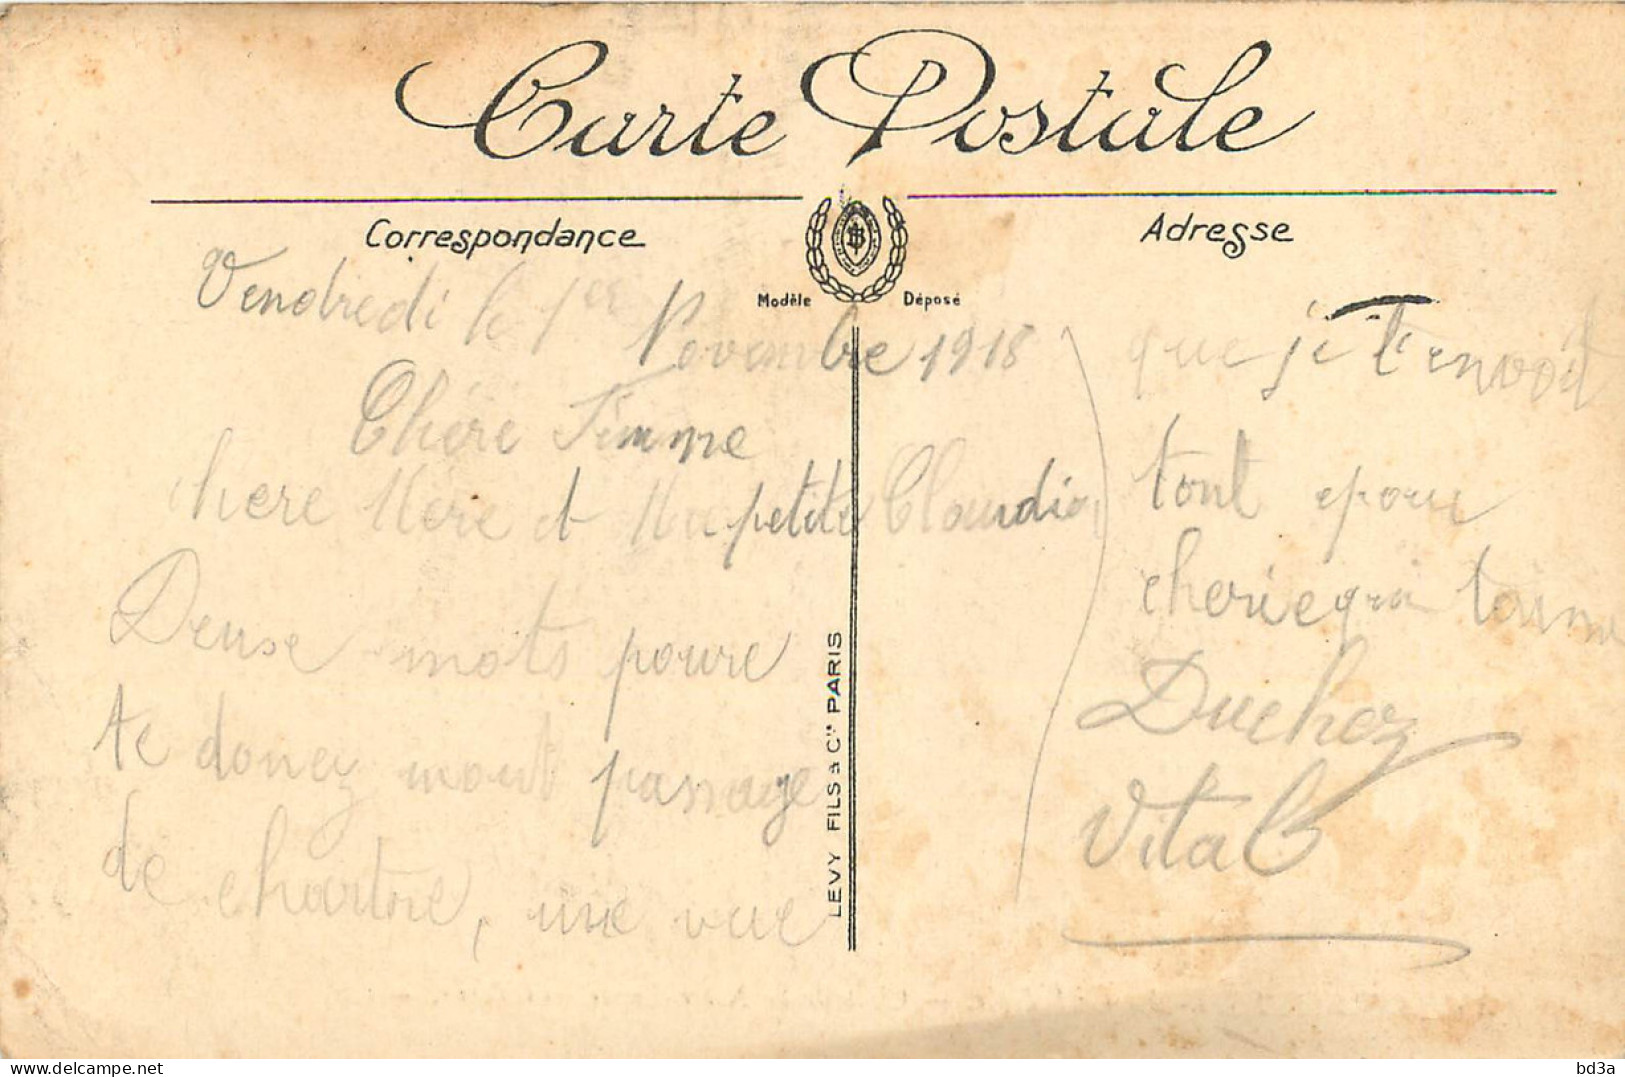 Carte Postale
Correspondance
Adresse
Modèle Déposé
Vendredi le 1er Novembre 1918
Chère Femme
chere Mere et Ma petite Claudia
Deuse mots poure
te doney mout passage
de chartre, une vue
que je t'envoit
tout epoux
cherie qui taime
Duchez
Vital
LEVY FILS & Cie PARIS
bd3a